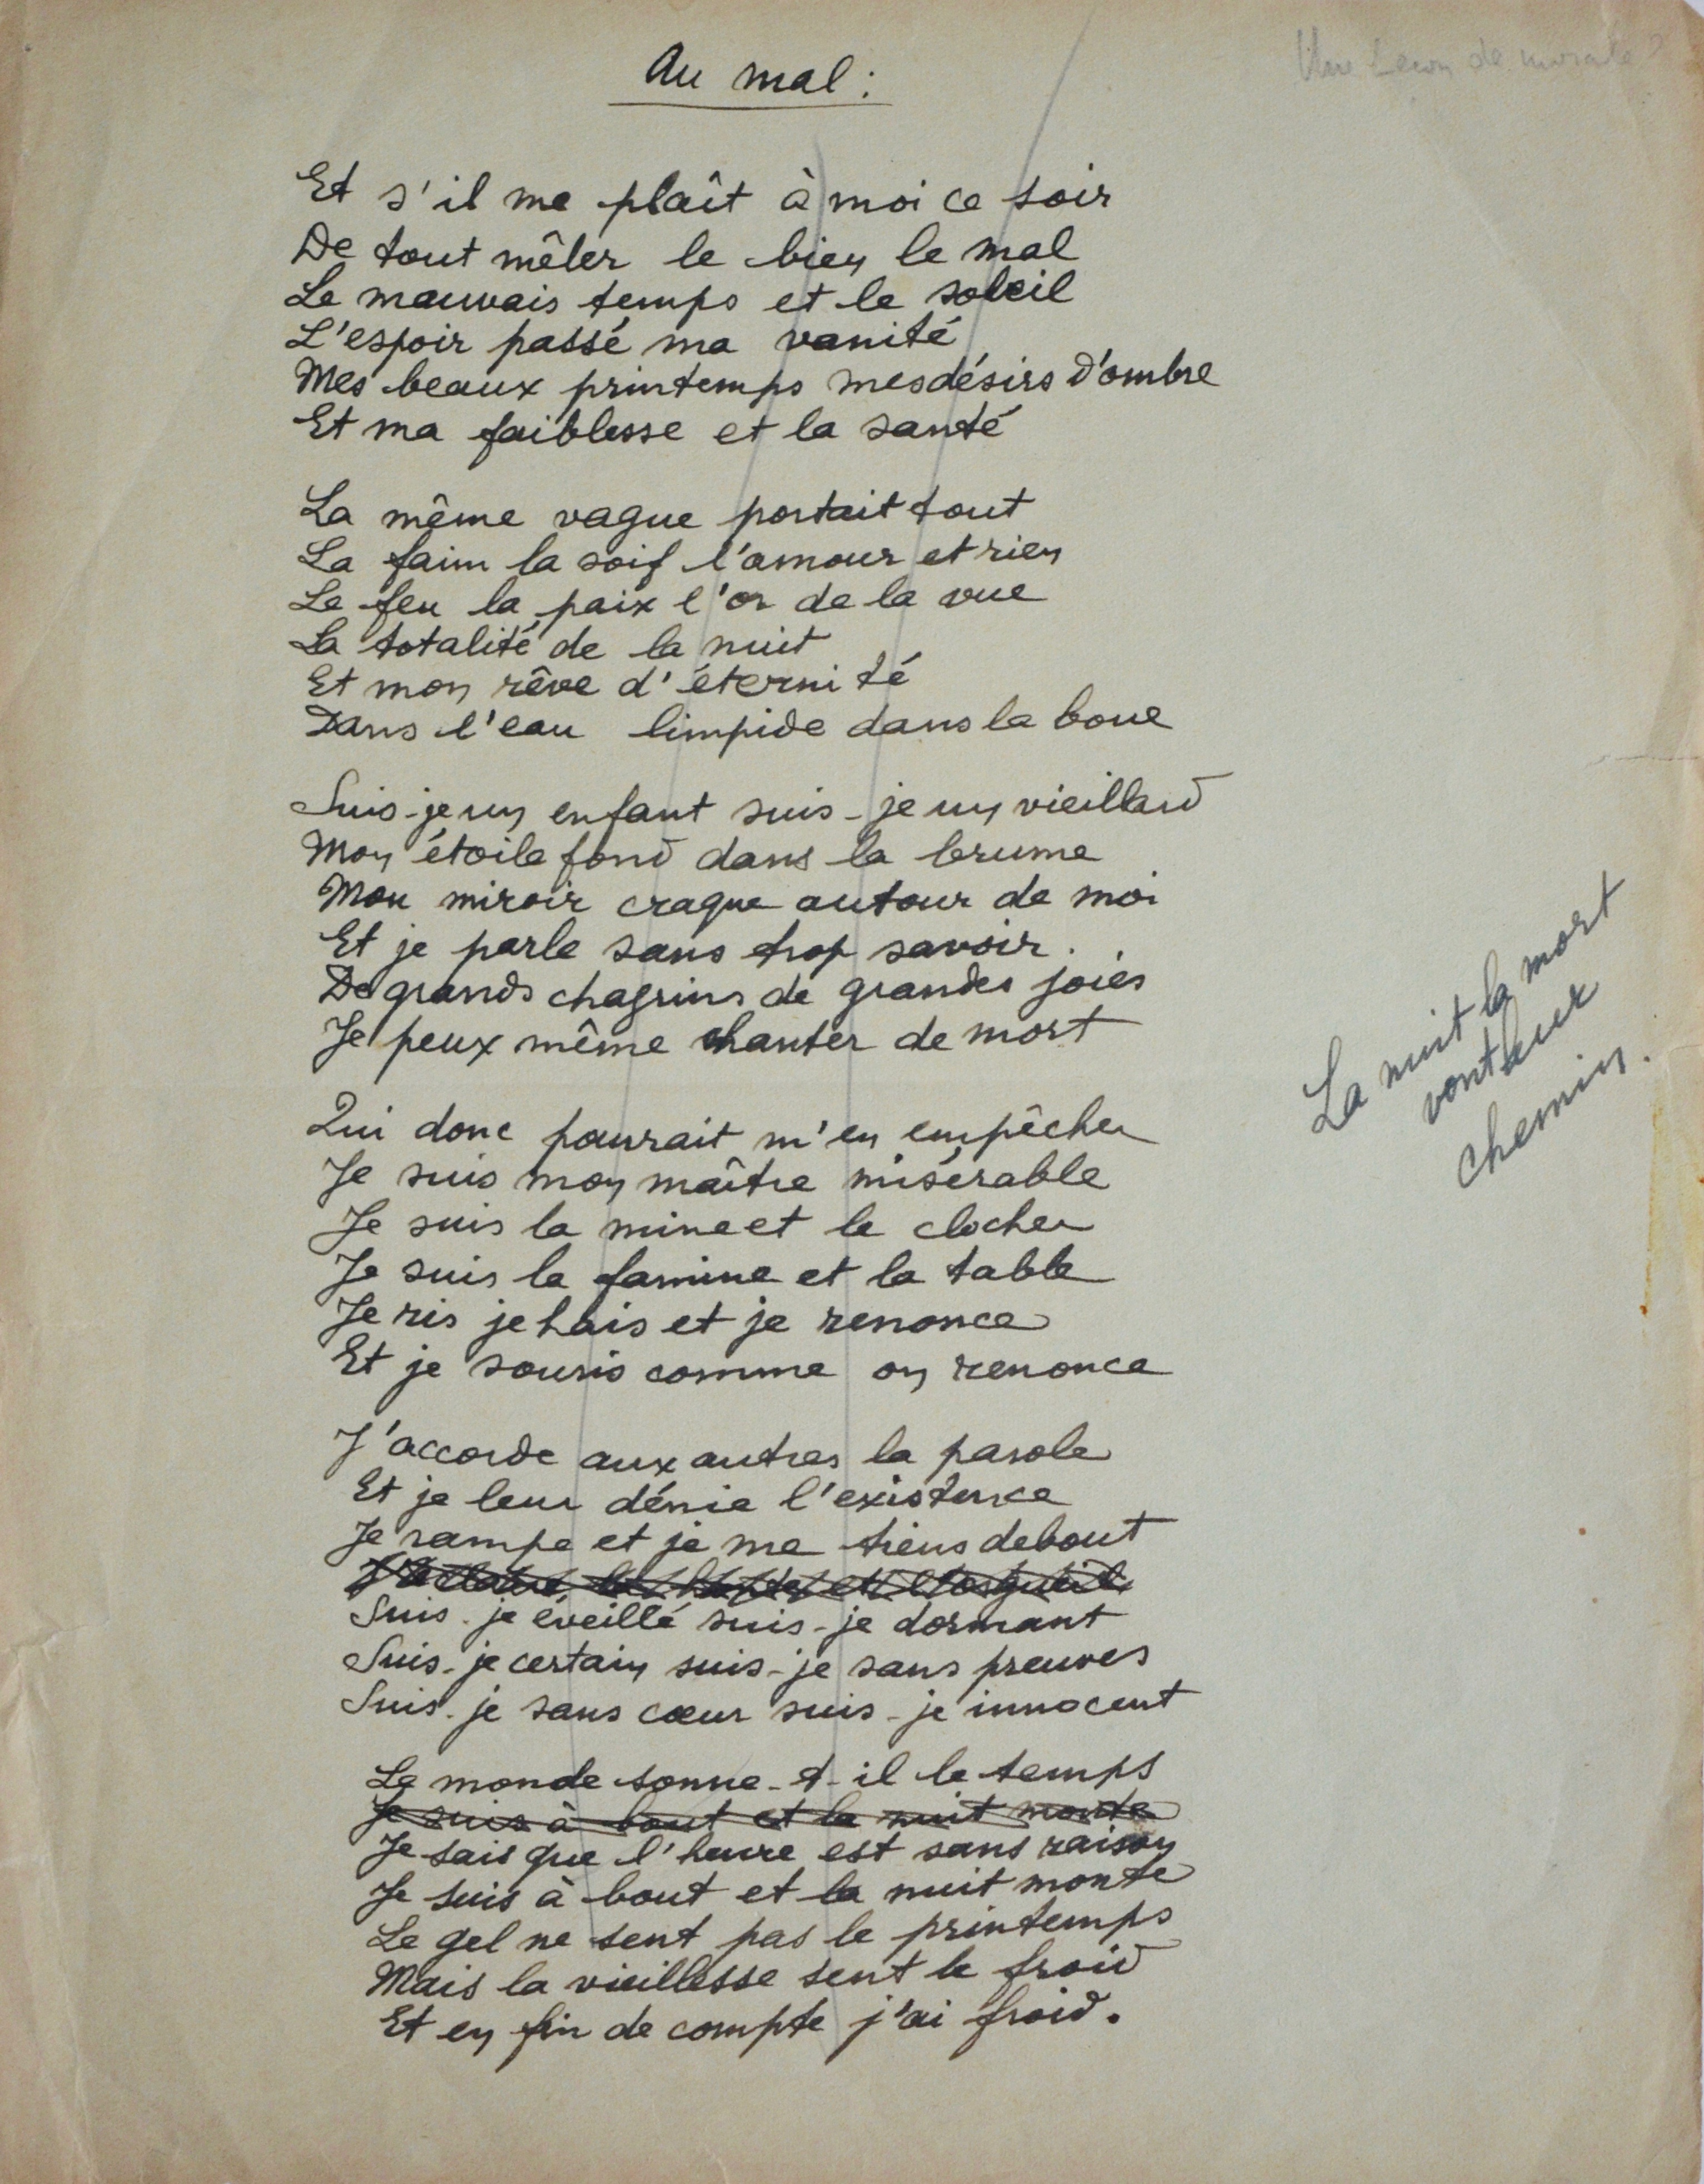 Une Leçon de morale ?
Au mal :
Et s'il me plaît à moi ce soir
De tout mêler le bien le mal
Le mauvais temps et le soleil
L'espoir passé ma vanité
Mes beaux printemps mes désirs d'ombre
Et ma faiblesse et la santé
La même vague portait tout
La faim la soif l'amour et rien
Le feu la paix l'or de la vue
La totalité de la nuit
Et mon rêve d'éternité
Dans l'eau limpide dans la boue
Suis-je un enfant suis-je un vieillard
Mon étoile fond dans la brume
Mon miroir craque autour de moi
Et je parle sans trop savoir.
De grands chagrins de grandes joies
Je peux même chanter de mort
La nuit la mort
vont leur
chemin.
Qui donc pourrait m'en empêcher
Je suis mon maître misérable
Je suis la mine et le clocher
Je suis la famine et la table
Je ris je hais et je renonce
Et je souris comme on renonce
J'accorde aux autres la parole
Et je leur dénie l'existence
Je rampe et je me tiens debout
la et l'orgueil
Suis-je éveillé suis-je dormant
Suis-je certain suis-je sans preuves
Suis-je sans cœur suis-je innocent
Le monde sonne-t-il le temps
Je suis à bout et la nuit monte
Je sais que l'heure est sans raison
Je suis à bout et la nuit monte
Le gel ne sent pas le printemps
Mais la vieillesse sent le froid
Et en fin de compte j'ai froid.